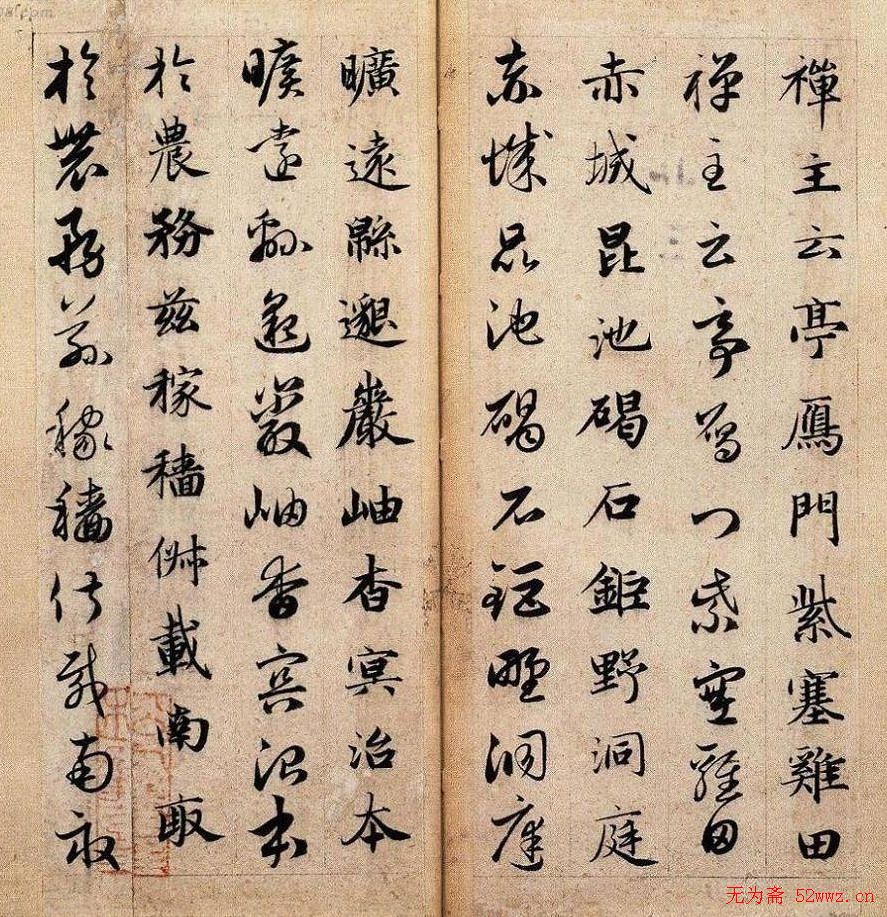 禪主云亭鴈門紫塞雞田
禅主云亭鴈门紫塞雞田
赤城昆池碣石鉅野洞庭
赤城昆池碣石鉅野洞庭
曠遠緜邈巖岫杳冥治本
曠遠緜邈巖岫杳冥治本
於農務茲稼穡俶載南畝
於農務茲稼穡俶載南畝
无为斋 52wwz.cn